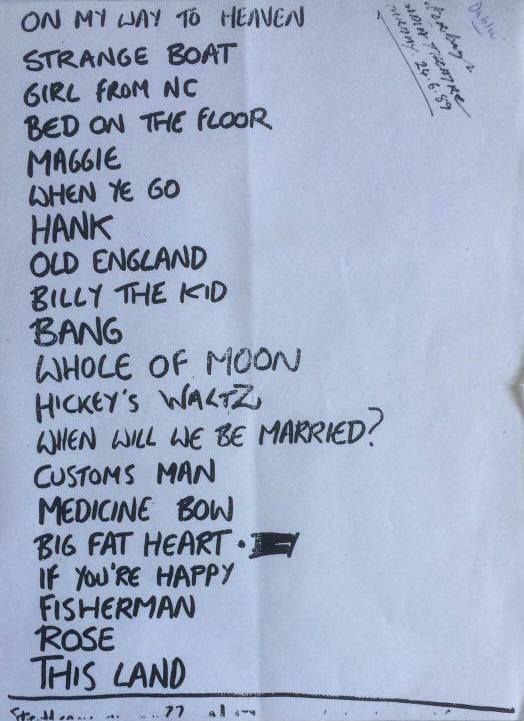 ON MY WAY TO HEAVEN
STRANGE BOAT
GIRL FROM NC
BED ON THE FLOOR
MAGGIE
WHEN YE GO
HANK
OLD ENGLAND
BILLY THE KID
BANG
WHOLE OF MOON
HICKEY'S WALTZ
WHEN WILL WE BE MARRIED?
CUSTOMS MAN
MEDICINE BOW
BIG FAT HEART.
IF YOU'RE HAPPY
FISHERMAN
ROSE
THIS LAND
Dublin
THEATRE
24.6.89